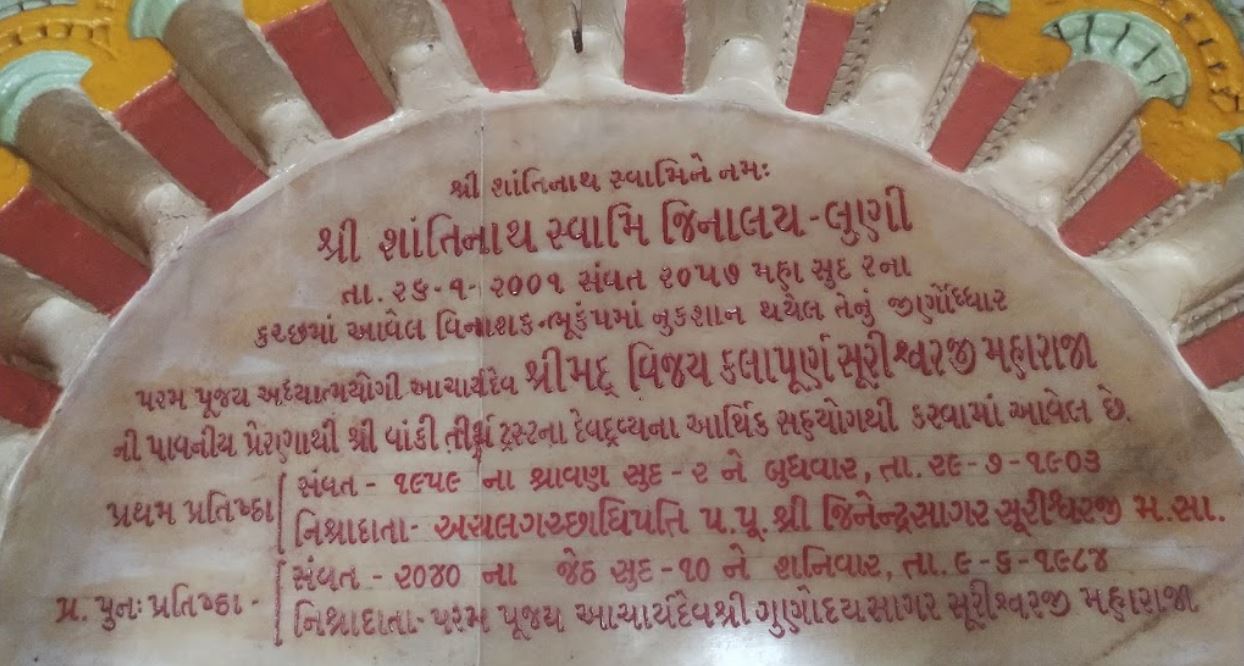 શ્રી શાંતિનાથ સ્વામિને નમઃ
શ્રી શાંતિનાથ સ્વામિ જિનાલય - લુણી
તા. ૨૬-૧-૨૦૦૧ સંવત ૨૦૫૭ મહા સુદ ૨ના
કચ્છમાં આવેલ વિનાશક ભૂકંપમાં નુકશાન થયેલ તેનું જીર્ણોધ્ધાર
પરમ પૂજય અધ્યાત્મયોગી આચાર્યદેવ શ્રીમદ્ વિજય કલાપૂર્ણ સૂરીશ્વરજી મહારાજા
ની પાવનીય પ્રેરણાથી શ્રી વાંકી તીર્થ ટ્રસ્ટના દેવદ્રવ્યના આર્થિક સહયોગથી કરવામાં આવેલ છે.
પ્રથમ પ્રતિષ્ઠા
સંવત - ૧૯૫૯ ના શ્રાવણ સુદ - ૨ ને બુધવાર, તા. ૨૯-૭-૧૯૦૩
નિશ્રાદાતા - અચલગચ્છાધિપતિ પ.પૂ. શ્રી જિનેન્દ્રસાગર સૂરીશ્વરજી મ.સા.
પ્ર. પુનઃ પ્રતિષ્ઠા -
સંવત - ૨૦૪૦ ના જેઠ સુદ - ૧૦ ને શનિવાર, તા. ૯-૬-૧૯૮૪
નિશ્રાદાતા - પરમ પૂજય આચાર્યદેવશ્રી ગુણોદયસાગર સૂરીશ્વરજી મહારાજા